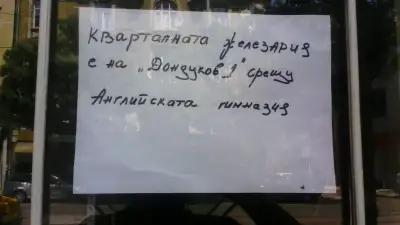 Кварталната железария
е на „Дондуков 1" срещу
Английската гимназия